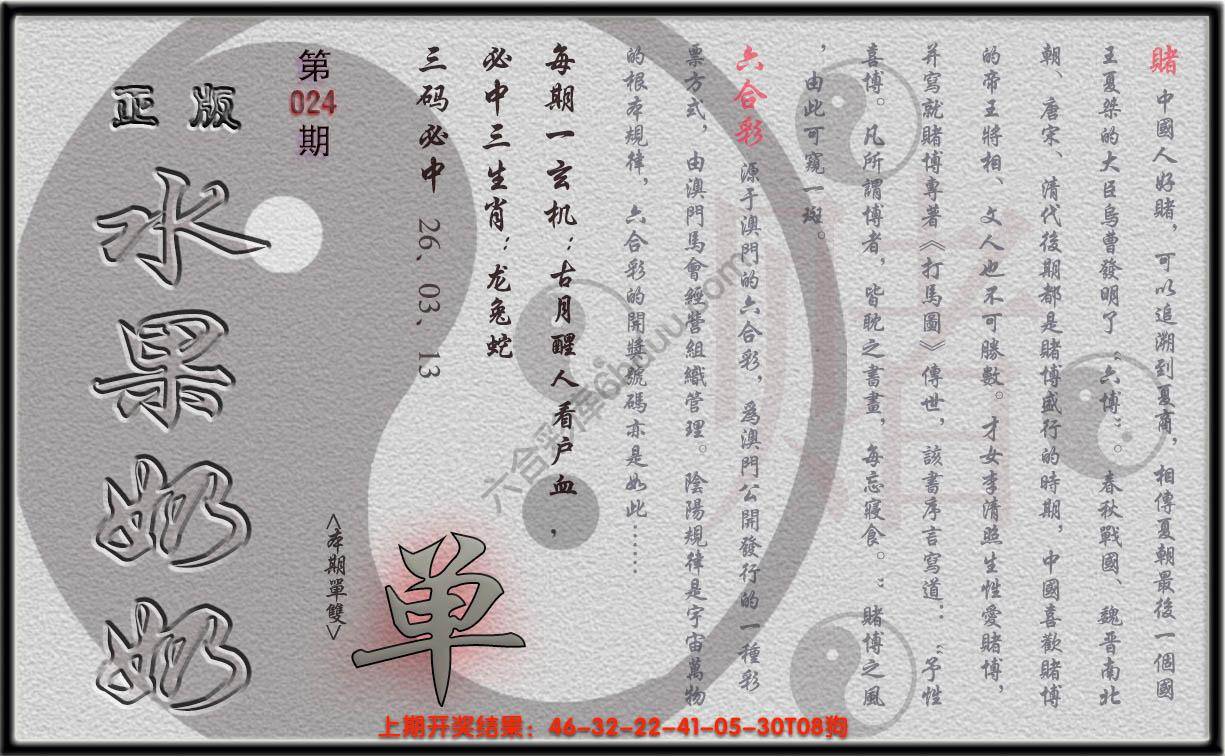 賭 中國人好賭，可以追溯到夏商，相傳夏朝最後一個國
王夏桀的大臣烏曹發明了“六博”。春秋戰國、魏晋南北
朝、唐宋、清代後期都是賭博盛行的時期，中國喜歡賭博
的帝王將相、文人也不可勝數。才女李清照生性愛賭博，
并寫就賭博專著《打馬圖》傳世，該書序言寫道：“予性
喜博。凡所謂博者，皆耽之晝畫，每忘寢食。”賭博之風
，由此可窺一斑。
六合彩 源于澳門的六合彩，爲澳門公開發行的一種彩
票方式，由澳門馬會經營組織管理。陰陽規律是宇宙萬物
的根本規律，六合彩的開獎號碼亦是如此……
每期一玄机：古月醒人看户血，
必中三生肖：龙兔蛇
三码必中 26、03、13
第
024
期
<本期單雙>
单
正版
水果奶奶
賭
六合彩
6huuu.com
上期开奖结果：46-32-22-41-05-30T08狗